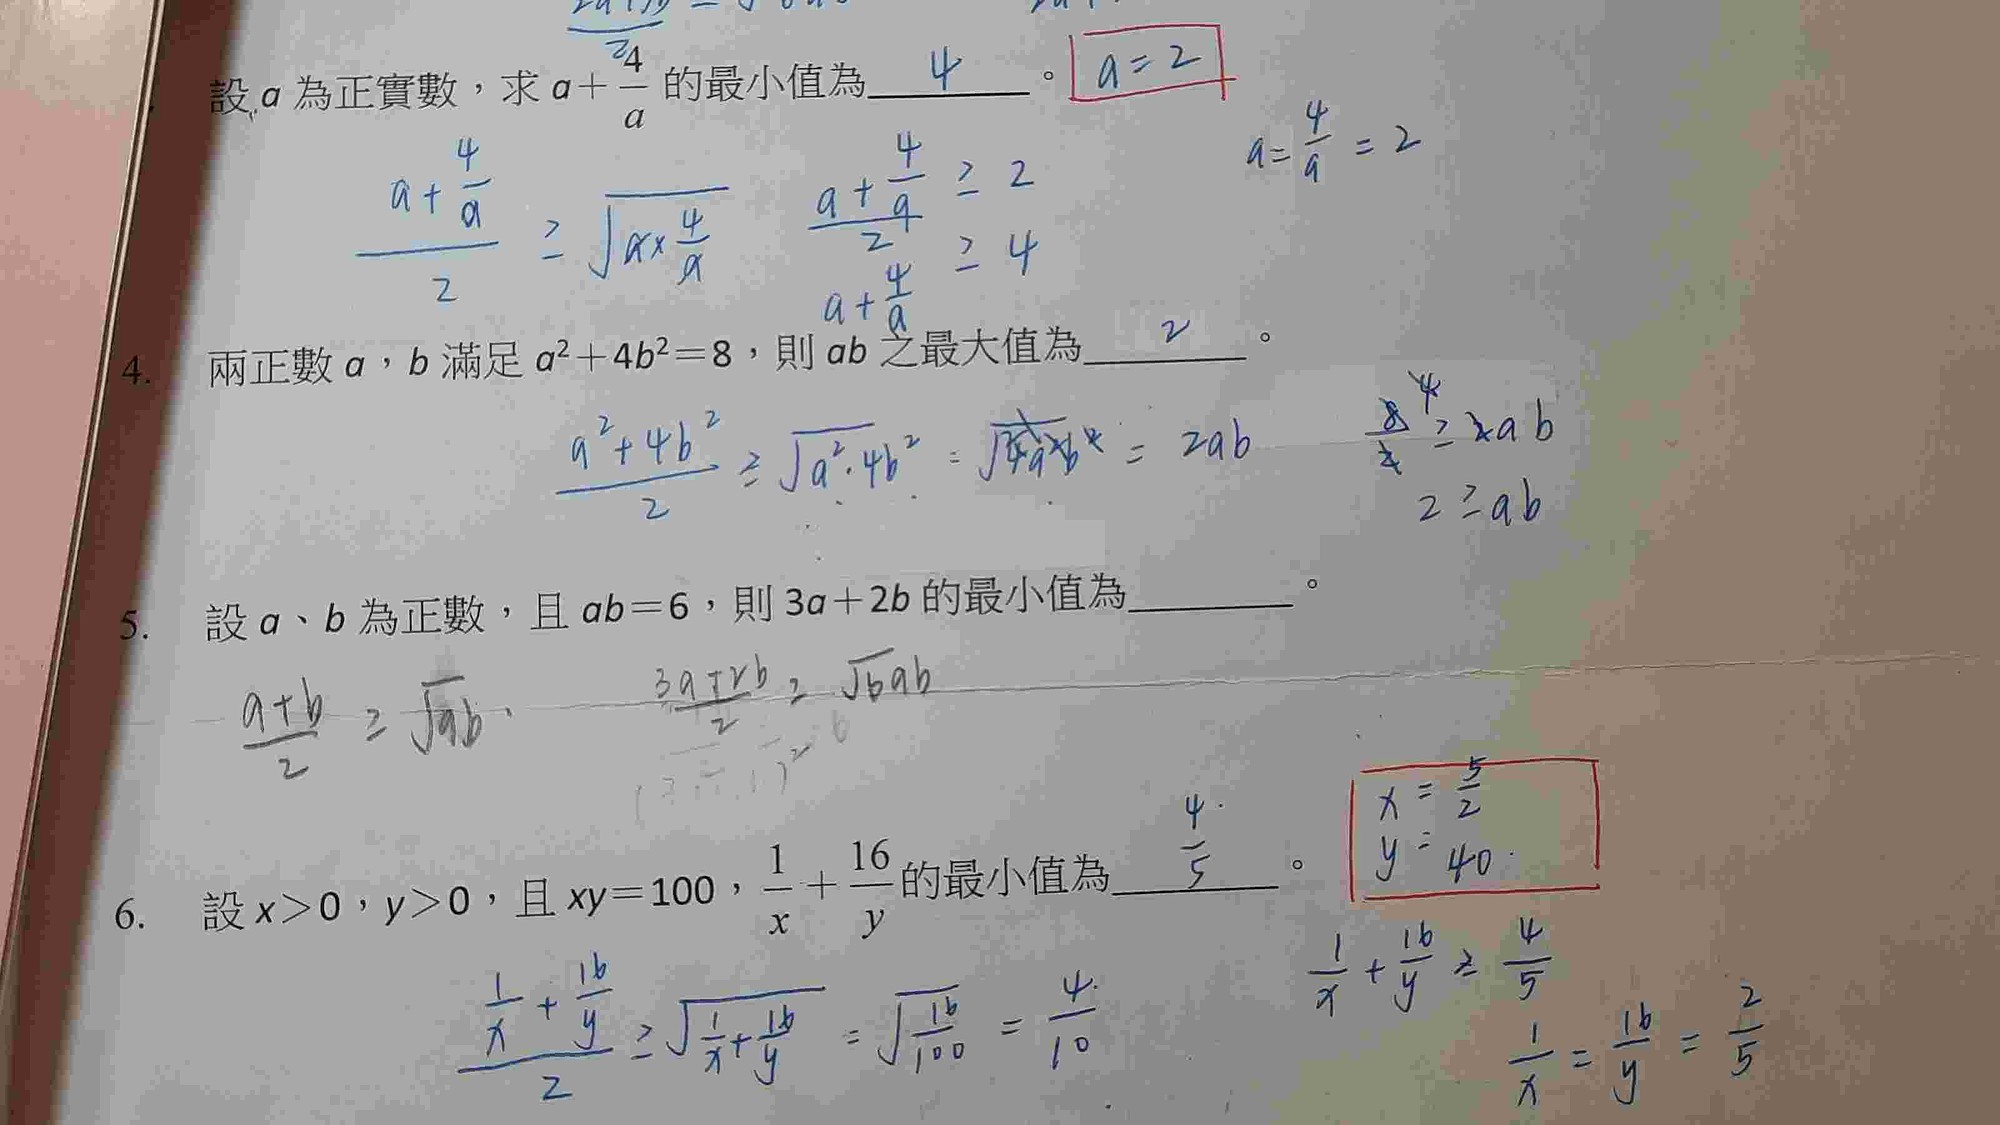 設 a 為正實數，求 a＋4/a 的最小值為 4 。 a=2
a=4/a=2
(a+4/a)/2 ≥ √(a×4/a)
(a+4/a)/2 ≥ 2
a+4/a ≥ 4
4. 兩正數 a，b 滿足 a²＋4b²＝8，則 ab 之最大值為 2 。
(a²+4b²)/2 ≥ √(a²·4b²) = √(4a²b²) = 2ab
8/2 ≥ 2ab
4
2 ≥ ab
5. 設 a、b 為正數，且 ab＝6，則 3a＋2b 的最小值為______。
(a+b)/2 ≥ √ab
(3a+2b)/2 ≥ √6ab
6. 設 x＞0，y＞0，且 xy＝100，1/x＋16/y 的最小值為 4/5 。
x = 5/2
y = 40
(1/x+16/y)/2 ≥ √(1/x+16/y) = √(16/100) = 4/10
1/x+16/y ≥ 4/5
1/x = 16/y = 2/5